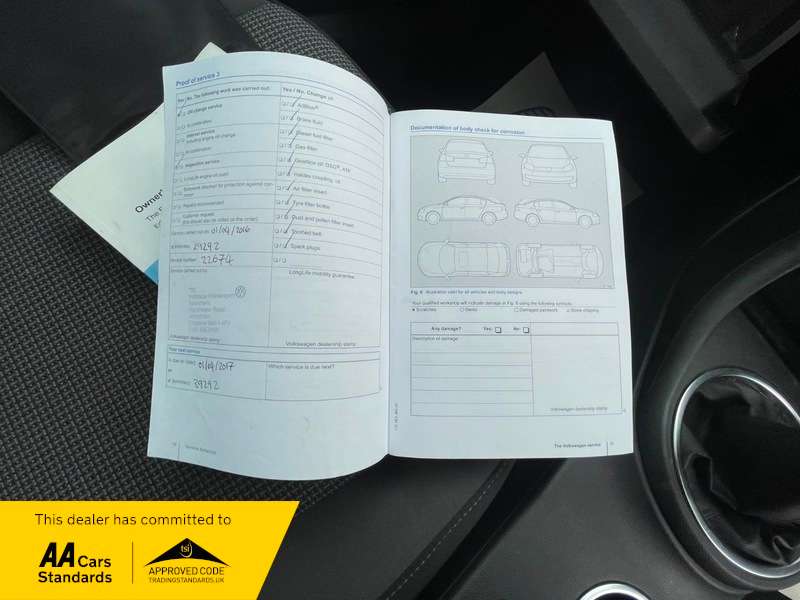 Proof of service 3
Yes / No. The following work was carried out:
Oil change service
Interval service
including engine oil change
Inspection service
LongLife engine oil used
Repairs recommended
Customer request
Service carried out on: 01/04/2016
29292
22674
Volkswagen dealership stamp
Your next service
01/04/2017
39292
Yes / No. Change of:
AdBlue®
Brake fluid
Diesel fuel filter
Gas filter
Gearbox oil: DSG®, ATF
Haldex coupling, oil
Air filter insert
Tyre filler bottle
Dust and pollen filter insert
Toothed belt
Spark plugs
LongLife mobility guarantee
Volkswagen dealership stamp
Which service is due next?
Documentation of body check for corrosion
Fig. 6 Illustration valid for all vehicles and body designs.
Your qualified workshop will indicate damage in Fig. 6 using the following symbols:
Scratches
Dents
Damaged paintwork
Stone chipping
Any damage? Yes: No:
Description of damage:
Volkswagen dealership stamp
The Volkswagen service
Owner'
This dealer has committed to
AA Cars
Standards
tsi
APPROVED CODE
TRADINGSTANDARDS.UK